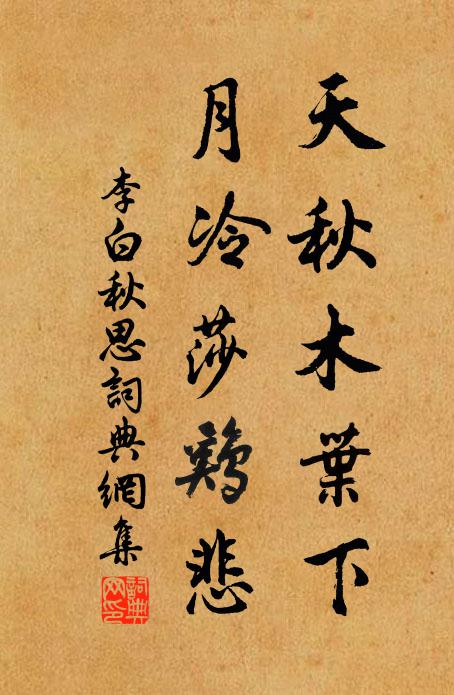 天秋木葉下
月冷莎鷄悲
李白秋思詞典網集
詞典网印